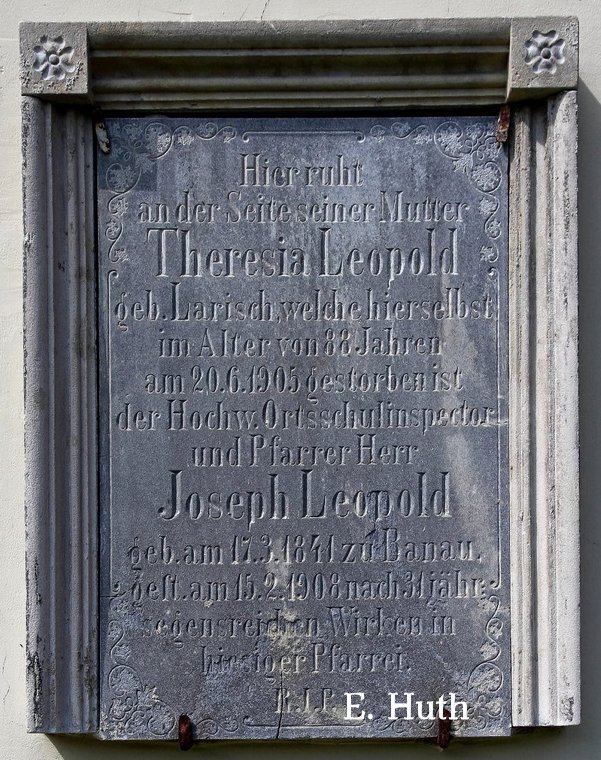 Hier ruht
an der Seite seiner Mutter
Theresia Leopold
geb. Larisch, welche hierselbst
im Alter von 88 Jahren
am 20.6.1905 gestorben ist
der Hochw. Ortsschulinspector
und Pfarrer Herr
Joseph Leopold
geb. am 17.3.1841 zu Banau,
gest. am 15.2.1908 nach 31 jähr.
segensreichen Wirken in
hiesiger Pfarrei.
R.I.P.
E. Huth